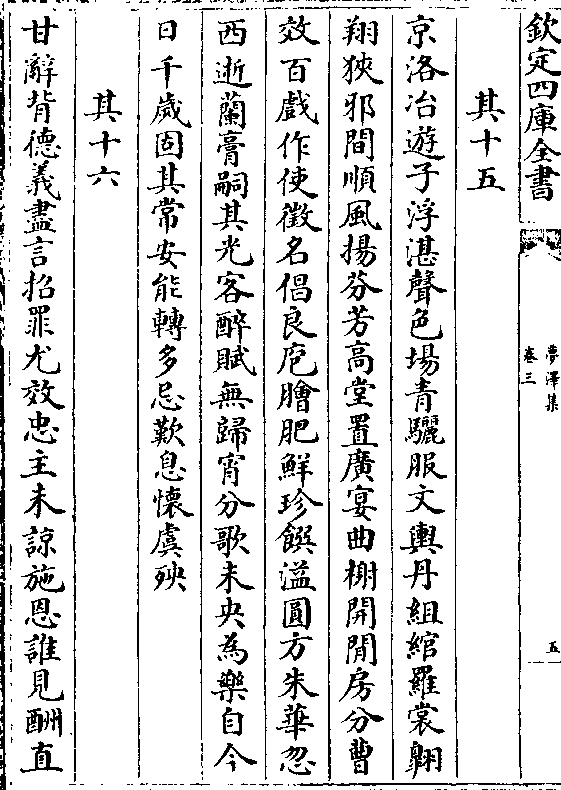 欽定四庫全書
夢澤集
卷三
五
其十五
京洛冶遊子浮湛聲色場青驪服文輿丹組綰羅裳翶
翔狹邪間順風揚芬芳高堂置廣宴曲榭開閒房分曹
效百戲作使徵名倡良庖膾肥鮮珍饌溢圓方朱華忽
西逝蘭膏嗣其光客醉賦無歸宵分歌未央為樂自今
日千歲固其常安能轉多忌歎息懷虞殃
其十六
甘辭背德義盡言招罪尤效忠主未諒施恩誰見酬直